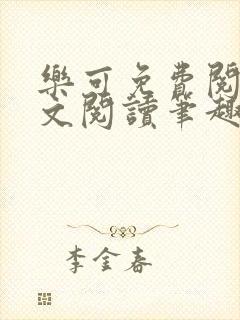 樂可免費閱
文閱讀筆趣
李金春